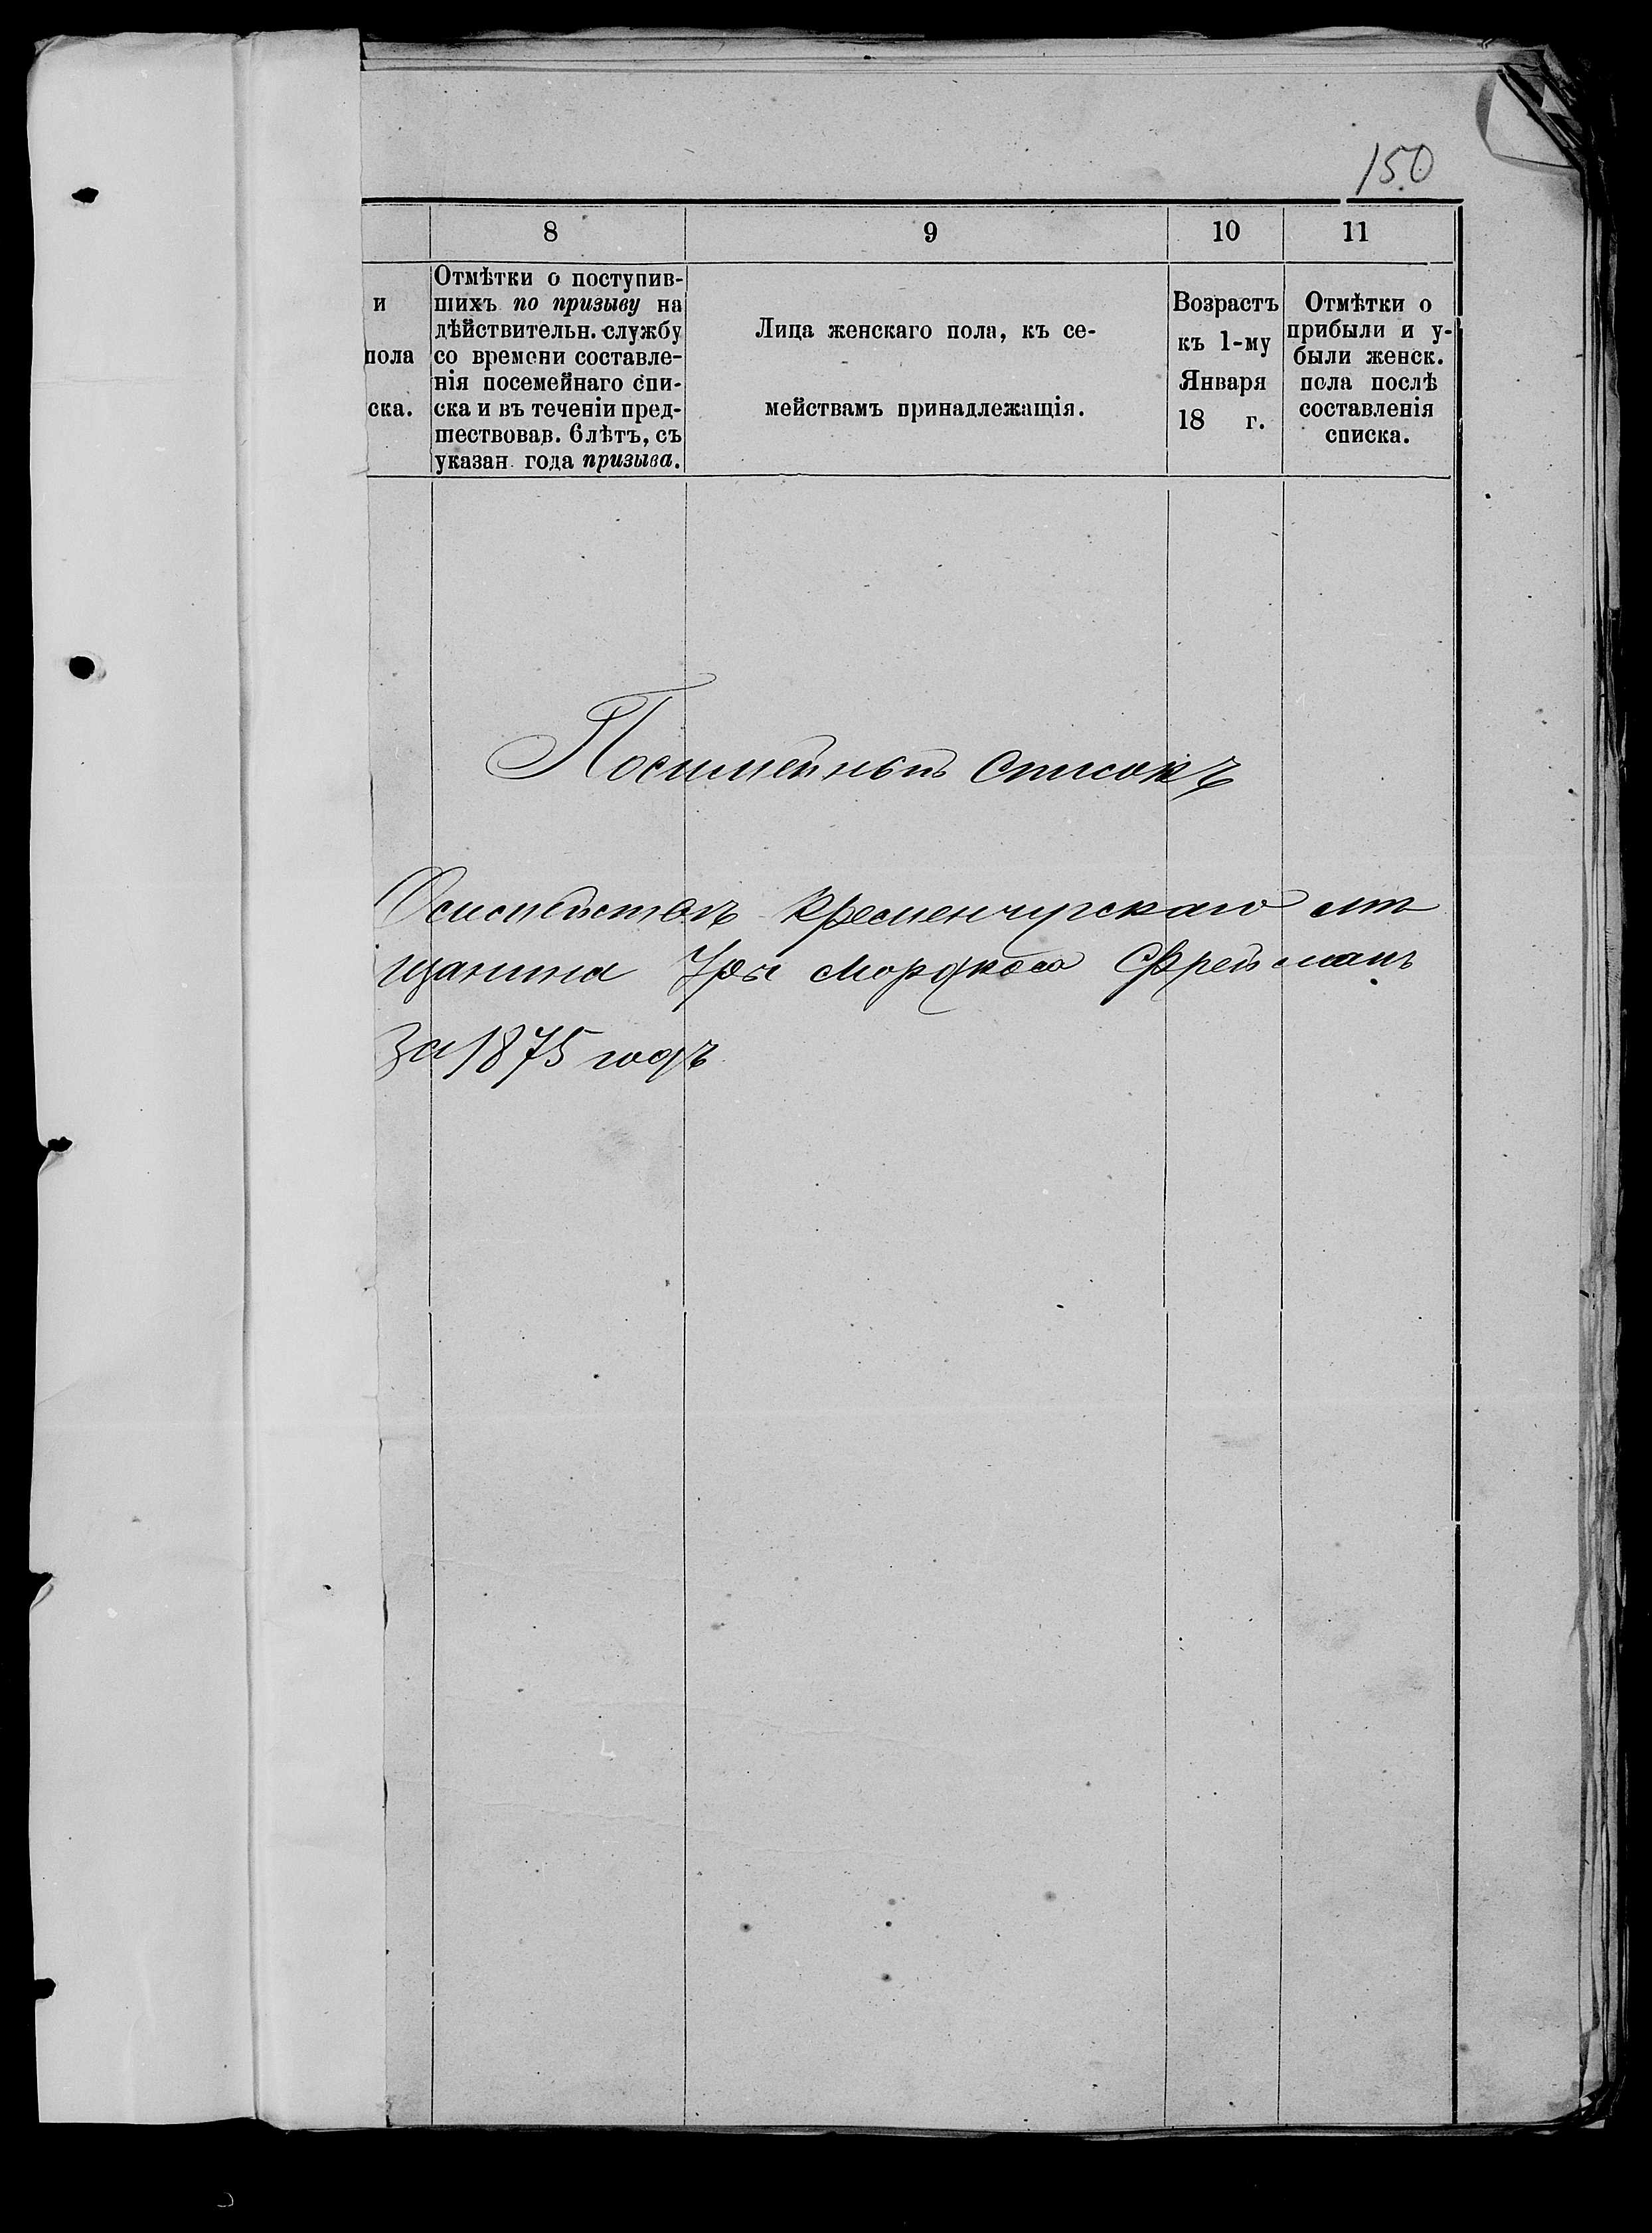 150
8
9
10
11
и
пола
ска.
Отмѣтки о поступив-
шихъ по призыву на
дѣйствительн. службу
со времени составле-
нія посемейнаго спи-
ска и въ теченіи пред-
шествовав. 6 лѣтъ, съ
указан. года призыва.
Лица женскаго пола, къ се-
мействамъ принадлежащія.
Возрастъ
къ 1-му
Января
18 г.
Отмѣтки о
прибыли и у-
были женск.
пола послѣ
составленія
списка.
Посимейный списокъ
О симействѣ Кременчугскаго мѣ
щанина Мордко Фрейманъ
За 1875 годъ